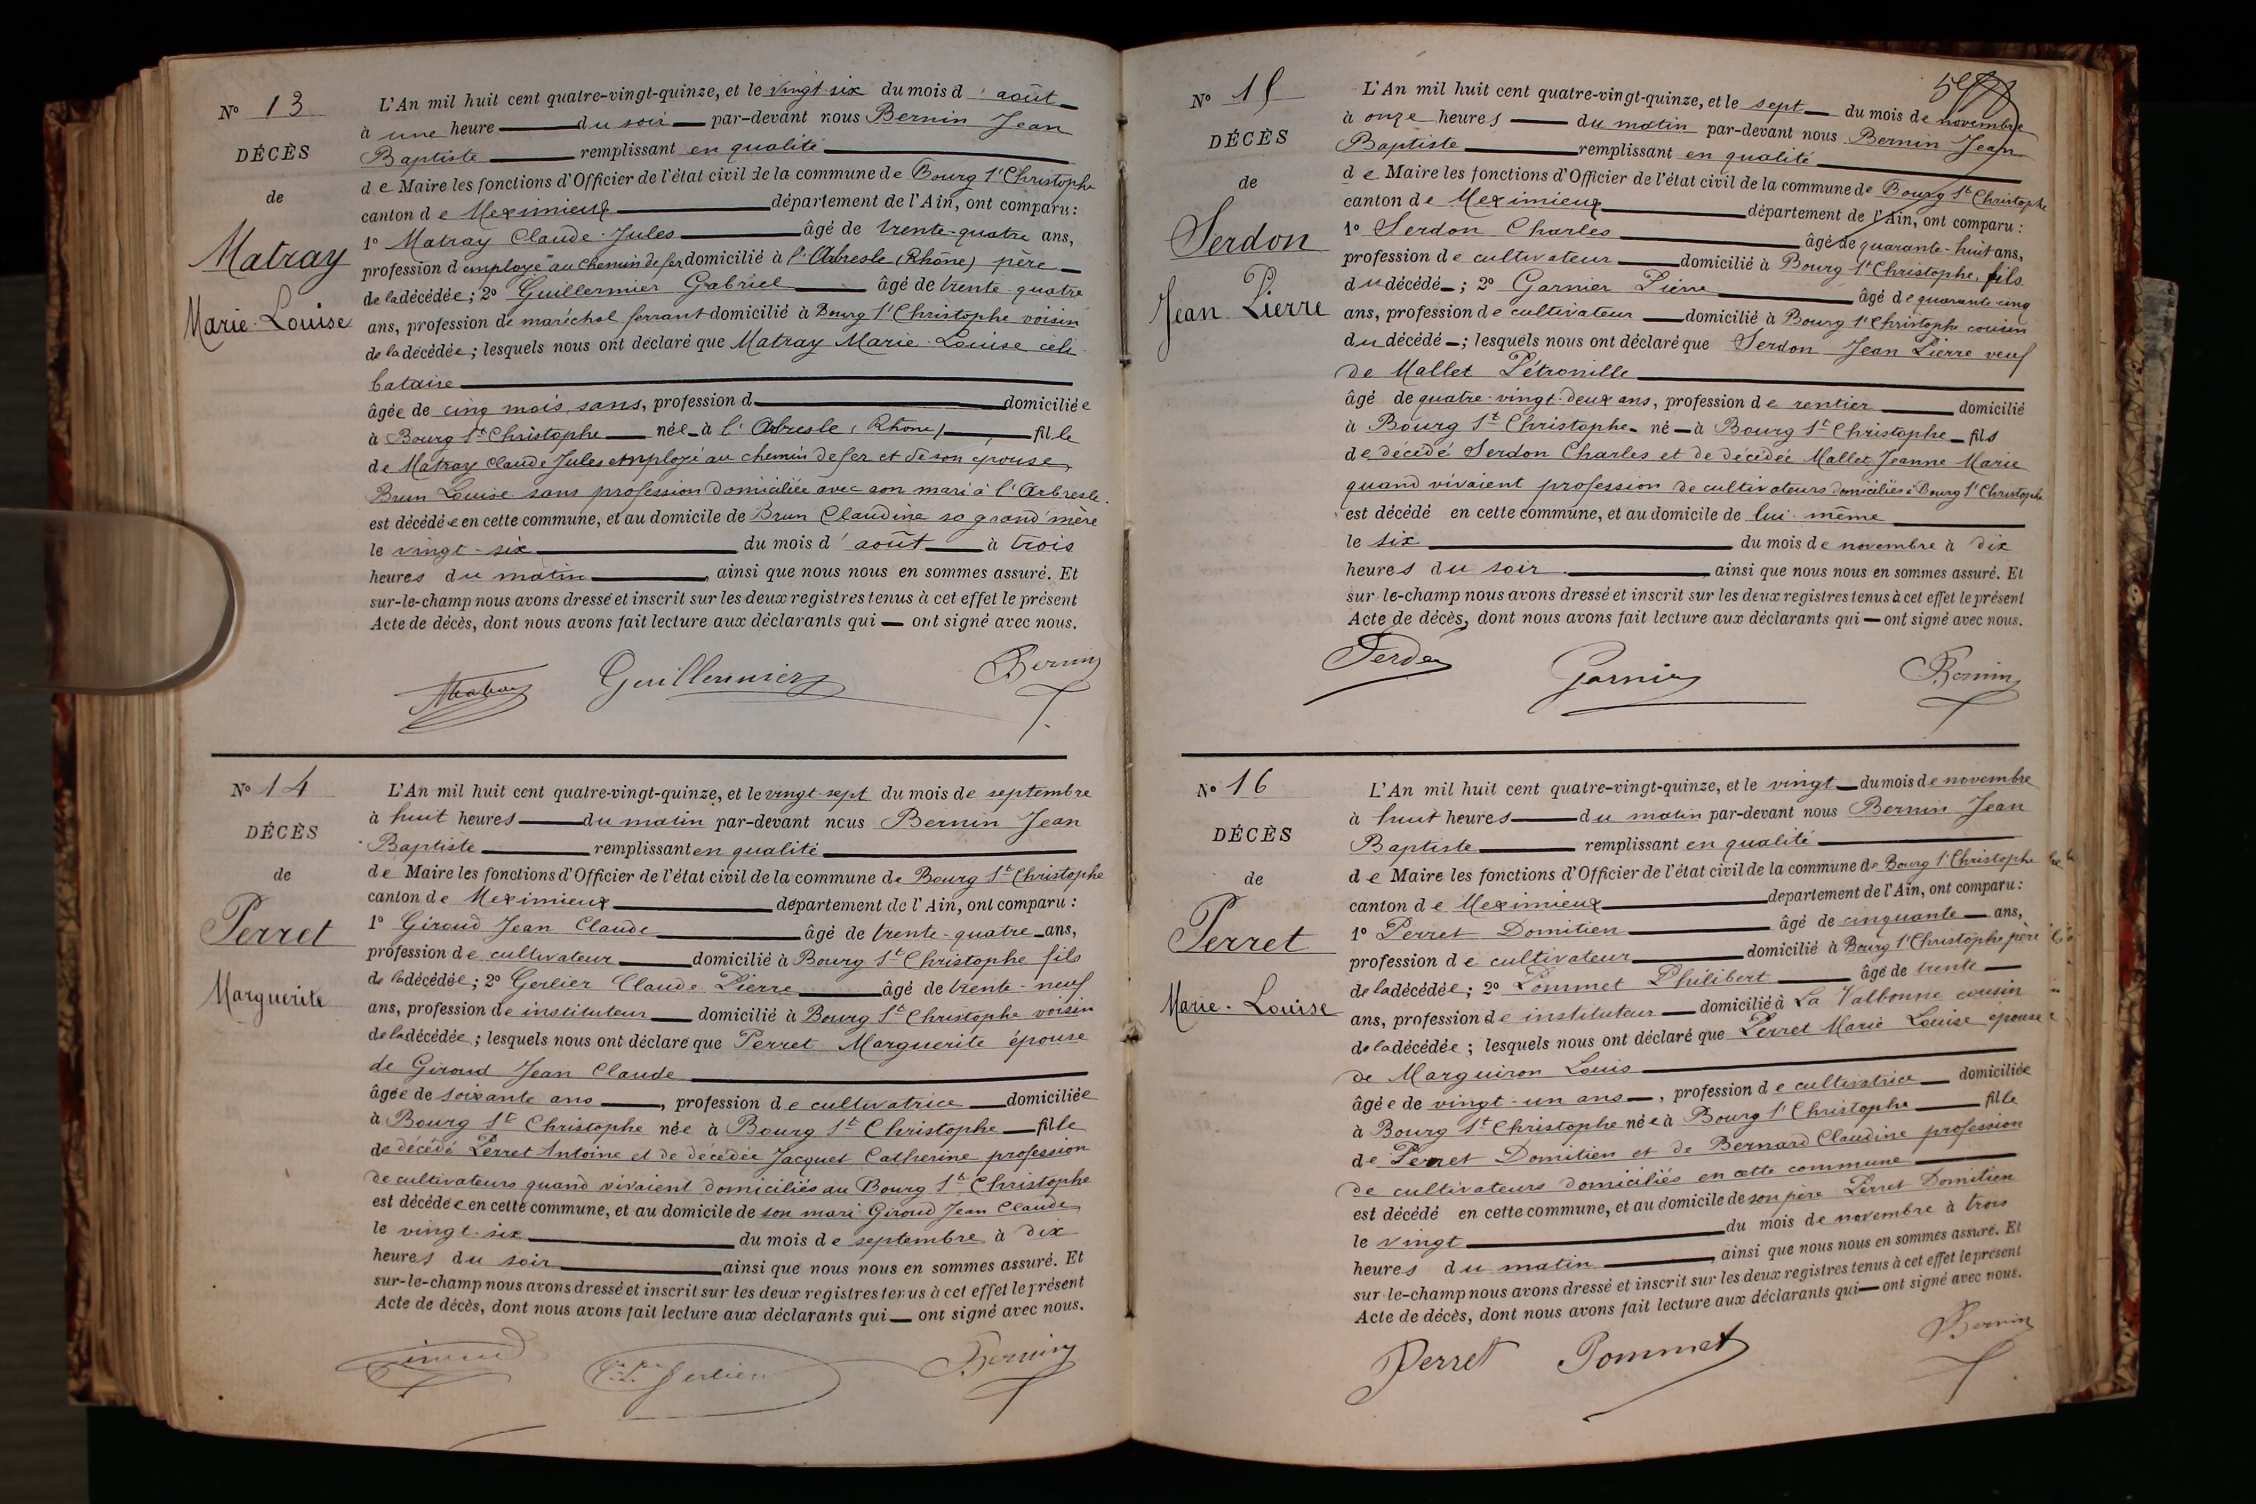 Nº 13
DÉCÈS
de
Matray
Marie-Louise
L'An mil huit cent quatre-vingt-quinze, et le vingt-six du mois d'août
à une heure du soir par-devant nous Bernin Jean
Baptiste remplissant en qualité
de Maire les fonctions d'Officier de l'état civil de la commune de Bourg St Christophe
canton de Meximieux département de l'Ain, ont comparu :
1º Matray Claude-Jules âgé de trente-quatre ans,
profession d'employé au chemin de fer domicilié à l'Arbresle (Rhône) père
de la décédée ; 2º Guillermier Gabriel âgé de trente-quatre
ans, profession de maréchal ferrant domicilié à Bourg St Christophe voisin
de la décédée ; lesquels nous ont déclaré que Matray Marie-Louise céli-
bataire
âgée de cinq mois, sans, profession d domiciliée
à Bourg St Christophe née à l'Arbresle (Rhône) fille
de Matray Claude Jules employé au chemin de fer et de son épouse
Brun Louise sans profession domiciliée avec son mari à l'Arbresle.
est décédée en cette commune, et au domicile de Brun Claudine sa grand'mère
le vingt-six du mois d'août à trois
heures du matin, ainsi que nous nous en sommes assuré. Et
sur-le-champ nous avons dressé et inscrit sur les deux registres tenus à cet effet le présent
Acte de décès, dont nous avons fait lecture aux déclarants qui ont signé avec nous.
Matray Guillermier Bernin
Nº 14
DÉCÈS
de
Perret
Marguerite
L'An mil huit cent quatre-vingt-quinze, et le vingt-sept du mois de septembre
à huit heures du matin par-devant nous Bernin Jean
Baptiste remplissant en qualité
de Maire les fonctions d'Officier de l'état civil de la commune de Bourg St Christophe
canton de Meximieux département de l'Ain, ont comparu :
1º Giroud Jean Claude âgé de trente-quatre ans,
profession de cultivateur domicilié à Bourg St Christophe fils
de la décédée ; 2º Gerlier Claude Pierre âgé de trente-neuf
ans, profession de instituteur domicilié à Bourg St Christophe voisin
de la décédée ; lesquels nous ont déclaré que Perret Marguerite épouse
de Giroud Jean Claude
âgée de soixante ans, profession de cultivatrice domiciliée
à Bourg St Christophe née à Bourg St Christophe fille
de décédé Perret Antoine et de décédée Jacquet Catherine profession
de cultivateurs quand vivaient domiciliés au Bourg St Christophe
est décédée en cette commune, et au domicile de son mari Giroud Jean Claude
le vingt-six du mois de septembre à dix
heures du soir ainsi que nous nous en sommes assuré. Et
sur-le-champ nous avons dressé et inscrit sur les deux registres tenus à cet effet le présent
Acte de décès, dont nous avons fait lecture aux déclarants qui ont signé avec nous.
Giroud Cl. Pre Gerlier Bernin
Nº 15
DÉCÈS
de
Serdon
Jean Pierre
L'An mil huit cent quatre-vingt-quinze, et le sept du mois de novembre
à onze heures du matin par-devant nous Bernin Jean
Baptiste remplissant en qualité
de Maire les fonctions d'Officier de l'état civil de la commune de Bourg St Christophe
canton de Meximieux département de l'Ain, ont comparu :
1º Serdon Charles âgé de quarante-huit ans,
profession de cultivateur domicilié à Bourg St Christophe, fils
du décédé ; 2º Garnier Pierre âgé de quarante cinq
ans, profession de cultivateur domicilié à Bourg St Christophe cousin
du décédé ; lesquels nous ont déclaré que Serdon Jean Pierre veuf
de Mallet Pétronille
âgé de quatre-vingt-deux ans, profession de rentier domicilié
à Bourg St Christophe né à Bourg St Christophe fils
de décédé Serdon Charles et de décédée Mallet Jeanne Marie
quand vivaient profession de cultivateurs domiciliés à Bourg St Christophe
est décédé en cette commune, et au domicile de lui-même
le six du mois de novembre à dix
heures du soir ainsi que nous nous en sommes assuré. Et
sur-le-champ nous avons dressé et inscrit sur les deux registres tenus à cet effet le présent
Acte de décès, dont nous avons fait lecture aux déclarants qui ont signé avec nous.
Serdon Garnier Bernin
Nº 16
DÉCÈS
de
Perret
Marie-Louise
L'An mil huit cent quatre-vingt-quinze, et le vingt du mois de novembre
à huit heures du matin par-devant nous Bernin Jean
Baptiste remplissant en qualité
de Maire les fonctions d'Officier de l'état civil de la commune de Bourg St Christophe
canton de Meximieux département de l'Ain, ont comparu :
1º Perret Domitien âgé de cinquante ans,
profession de cultivateur domicilié à Bourg St Christophe père
de la décédée ; 2º Pommet Philibert âgé de trente
ans, profession de instituteur domicilié à La Valbonne cousin
de la décédée ; lesquels nous ont déclaré que Perret Marie Louise épouse
de Marguiron Louis
âgée de vingt-un ans, profession de cultivatrice domiciliée
à Bourg St Christophe née à Bourg St Christophe fille
de Perret Domitien et de Bernard Claudine profession
de cultivateurs domiciliés en cette commune
est décédé en cette commune, et au domicile de son père Perret Domitien
le vingt du mois de novembre à trois
heures du matin, ainsi que nous nous en sommes assuré. Et
sur-le-champ nous avons dressé et inscrit sur les deux registres tenus à cet effet le présent
Acte de décès, dont nous avons fait lecture aux déclarants qui ont signé avec nous.
Perret Pommet Bernin